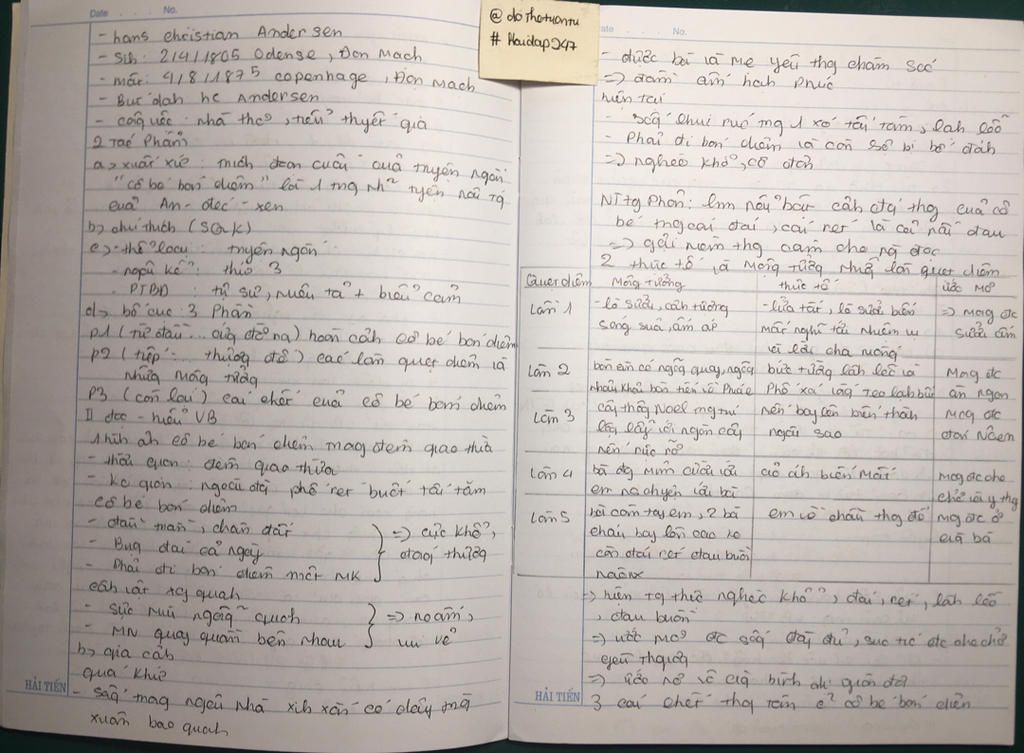 Date No.
- hans christian Andersen
- Sih: 2/4/1805 Odense, Đan Mạch
- mất: 4/8/1875 copenhage, Đan Mạch
- Bút dah hc Andersen
- côg việc: nhà thơ, tiểu thuyết gia
2 Tác Phẩm
a> xuất xứ: trích đoạn cuối của truyện ngắn
"cô bé bán diêm" là 1 tg nh² tyện nổi tg
của An-đéc-xen
b> chú thích (SGK)
c> - thể loại: truyện ngắn
- ngôi kể: thứ 3
- PTBĐ: tự sự, miêu tả + biểu cảm
d> bố cục: 3 Phần
p1 (từ đầu ... cứg đờ ra) hoàn cảh cô bé bán diêm
p2 (tiếp ... thượg đế) các lần quẹt diêm và
nhữg mộg tưởg
P3 (còn lại) cái chết của cô bé bán diêm
II đọc - hiểu VB
1 hìh ảh cô bé bán diêm trog đêm giao thừa
- thời gian: đêm giao thừa
- ko gian: ngoài đg phố rét buốt tối tăm
cô bé bán diêm
- đầu trần, chân đất
- Bụg đói cả ngày
- Phải đi bán diêm một MK
=> cực khổ, đág thươg
cảh vật xg quah
- sực nức ngỗg quay
- MN quây quần bên nhau
=> no ấm, vui vẻ
b> gia cảh
quá khứ
- sốg trog ngôi nhà xih xắn có dây trườg
xuân bao quah
HẢI TIẾN
@dothatuantu
# Hoidap247
ate No.
- được bà và mẹ yêu thg chăm sóc
=> đầm ấm hạh phúc
hiện tại
- sốg chui rúc trg 1 xó tối tăm, lạh lẽo
- Phải đi bán diêm và còn sợ bị bố đáh
=> nghèo khổ, cô đơn
NT tg phản: làm nổi bật cảh đág thg của cô
bé trg cái đói, cái rét và cả nỗi đau
=> gợi niềm thg cảm cho ng đọc
2 thực tế và mộg tưởg nhữg lần quẹt diêm
Quẹt diêm Mộg tưởg thực tế ước mơ
Lần 1 - lò sưởi, cảh tượg ság sủa, ấm áp - lửa tắt, lò sưởi biến mất nghĩ tới nhiệm vụ và lời cha mắng => mog đc sưởi ấm
Lần 2 bàn ăn có ngỗg quay, ngỗg nhảy khỏi bàn tiến về Phía e bức tườg lạh lẽo và Phố xá vắg teo lạh buốt Mog đc ăn ngon
Lần 3 cây thôg Noel trg trí lộg lẫy với ngàn cây nến rực rỡ nến bay lên biến thàh ngôi sao Mog đc đón Noen
Lần 4 bà đg mỉm cười với em nc chuyện với bà ảo ảh biến mất mog đc che chở và y thg
Lần 5 bà cầm tay em, 2 bà cháu bay lên cao ko còn đói rét đau buồn nào em về chầu thg đế mg đc ở cùg bà
=> hiện tg thực nghèo khổ, đói, rét, lạh lẽo
, đau buồn
=> ước mơ đc sốg đầy đủ, sug túc đc che chở
yêu thươg
=> ước mơ vô cùg bìh dị giản đơn
3 cái chết thg tâm c² cô bé bán diêm
HẢI TIẾN